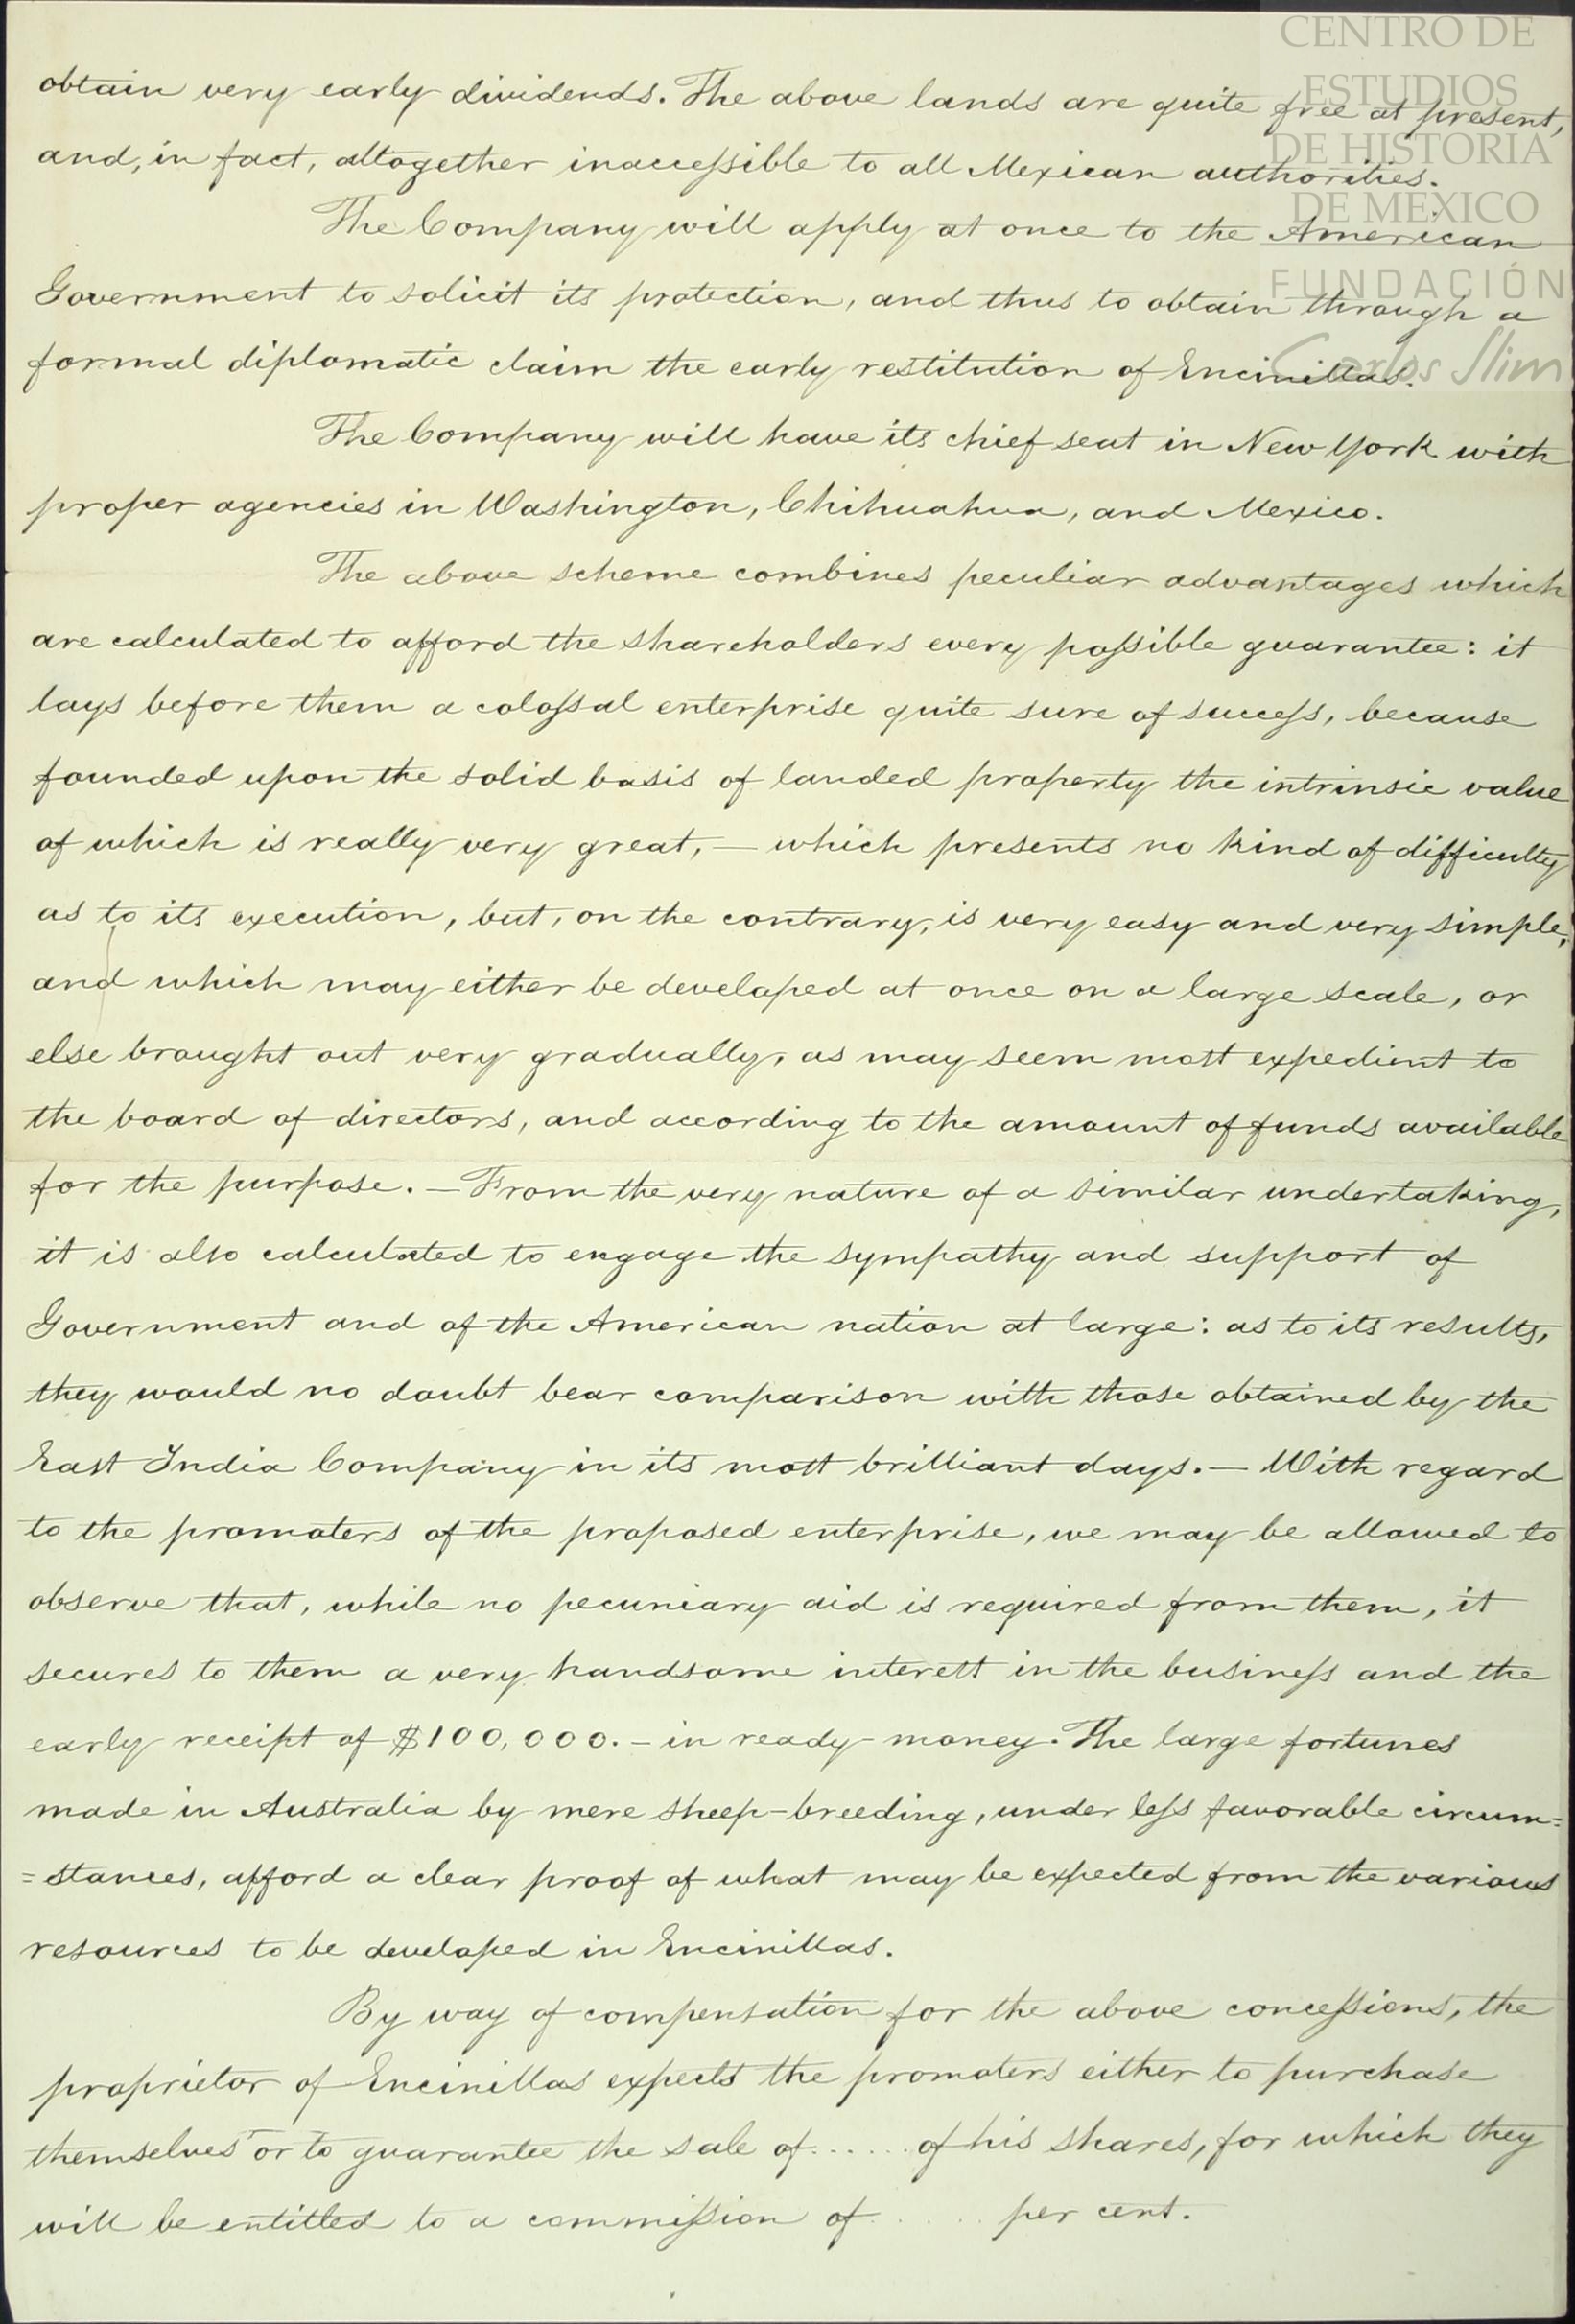 CENTRO DE
ESTUDIOS
DE HISTORIA
DE MÉXICO
FUNDACIÓN
Carlos Slim
obtain very early dividends. The above lands are quite free at present,
and, in fact, altogether inaccessible to all Mexican authorities.
The Company will apply at once to the American
Government to solicit its protection, and thus to obtain through a
formal diplomatic claim the early restitution of Encinillas.
The Company will have its chief seat in New York with
proper agencies in Washington, Chihuahua, and Mexico.
The above scheme combines peculiar advantages which
are calculated to afford the shareholders every possible guarantee: it
lays before them a colossal enterprise quite sure of success, because
founded upon the solid basis of landed property the intrinsic value
of which is really very great, — which presents no kind of difficulty
as to its execution, but, on the contrary, is very easy and very simple,
and which may either be developed at once on a large scale, or
else brought out very gradually, as may seem most expedient to
the board of directors, and according to the amount of funds available
for the purpose. — From the very nature of a similar undertaking,
it is also calculated to engage the sympathy and support of
Government and of the American nation at large: as to its results,
they would no doubt bear comparison with those obtained by the
East India Company in its most brilliant days. — With regard
to the promoters of the proposed enterprise, we may be allowed to
observe that, while no pecuniary aid is required from them, it
secures to them a very handsome interest in the business and the
early receipt of $100,000. — in ready money. The large fortunes
made in Australia by mere sheep-breeding, under less favorable circum=
=stances, afford a clear proof of what may be expected from the various
resources to be developed in Encinillas.
By way of compensation for the above concessions, the
proprietor of Encinillas expects the promoters either to purchase
themselves or to guarantee the sale of ..... of his shares, for which they
will be entitled to a commission of ..... per cent.